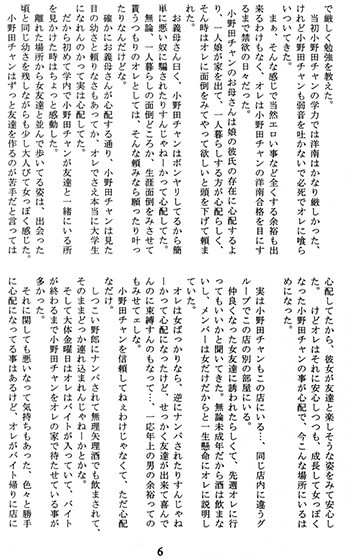 で厳しく勉強を教えた。
当初小野田チャンの学力では洋南はかなり厳しかった、
けれど小野田チャンも弱音を吐かないで必死でオレに喰ら
いついてきた。
まぁ、そんな感じで当然エロい事など全くする余裕も出
来るわけもなく、オレは小野田チャンの洋南合格を目にす
るまで禁欲の日々だった。
小野田チャンのお母さんは娘の彼氏の存在に心配するよ
り、一人娘が家を出て、一人暮らしする方が心配らしく、
そん時はオレに面倒をみてやって欲しいと頭を下げて頼ま
れた。
お義母さん曰く、小野田チャンはボンヤリしてるから簡
単に悪い奴に騙されたりすんじゃねーかって心配してた。
無論、一人暮らしの面倒どころか、生涯面倒をみさせて
貰うつもりのオレとしては、そんな頼みなら願ったり叶っ
たりなんだけどな。
確かにお義母さんが心配する通り、小野田チャンは見た
目の幼さと頼りなさもあってか、オレでさえ本当に大学生
になれんのかって実は心配してた。
だから初めて学内で小野田チャンが友達と一緒にいる所
を見かけた時はちょっと感動した。
離れた場所から女友達と並んで歩いてる姿は、出会った
頃と同じ幼さを残しながらも少し大人びて女っぽく感じた。
小野田チャンはずっと友達を作るのが苦手だと言っては
心配してたから、彼女が友達と楽しそうな姿をみて安心し
た。けどオレはそれに安心しつつも、成長して女っぽく
なった小野田チャンの事が心配で、今こんな場所にいるは
めになった。
実は小野田チャンもこの店にいる…、同じ店内に違うグ
ループでこの店の別の部屋にいる。
仲良くなった女友達に誘われたらしくて、先週オレに行
ってもいいかと聞いてきた。無論未成年だから酒は飲まな
いし、メンバーは女だけだからと一生懸命にオレに説明し
ていた。
オレは女ばっかりなら、逆にナンパされたりすんじゃね
ーかって心配になったけど、せっかく友達が出来て喜んで
んのに束縛すんのもなって…、一応年上の男の余裕っての
もみせてェしな。
小野田チャンを信頼してねぇわけじゃなくて、ただ心配
なだけ。
しつこい野郎にナンパされて無理矢理酒でも飲まされて、
そのままどっか連れ込まれんじゃねーかとかな。
そして大体金曜日はオレはバイトが入っていて、バイト
が終わるまで小野田チャンをオレの家で待たせている事が
多かった。
それに関しても悪いなって気持ちもあった、色々と勝手
に心配になってる事はあるけど、オレがバイト帰りに店に
6